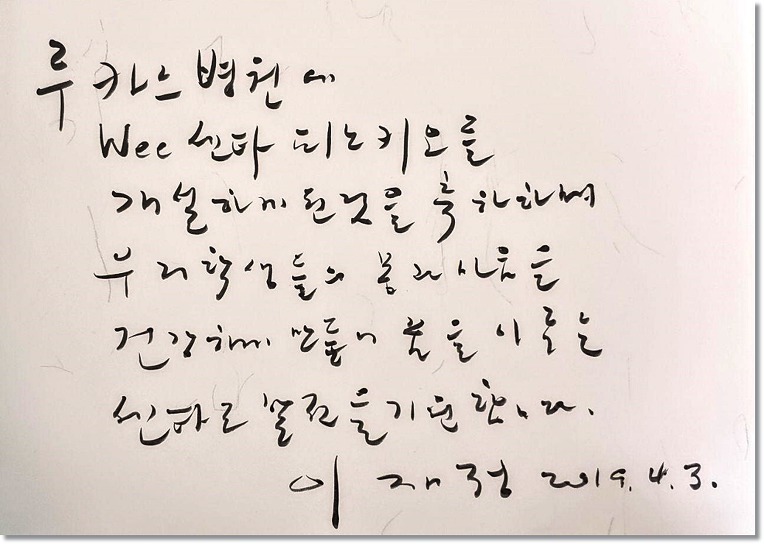 루카스병원에
Wee 센타 피노키오를
개설하게된것을 축하하며
우리학생들의 몸과 마음을
건강하게 만들어 꿈을 이루는
센타로 발전을기원합니다.
이재정 2019. 4. 3.